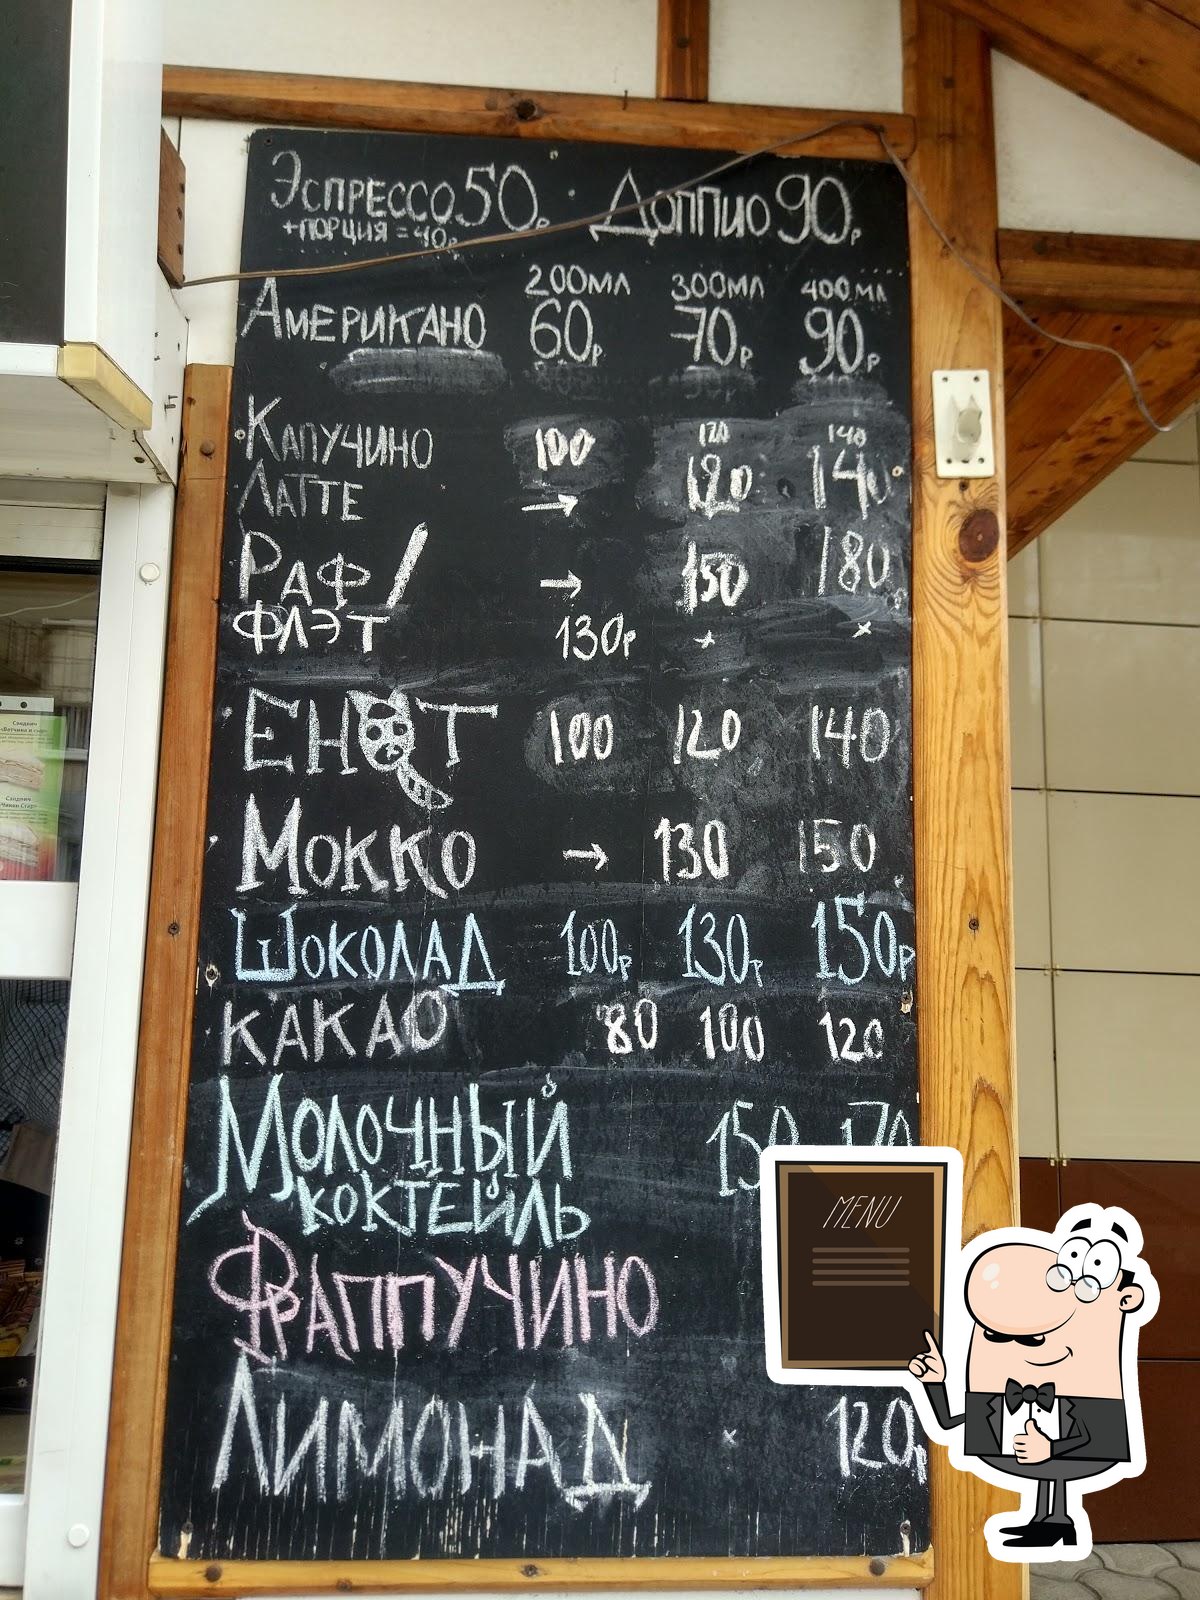 Эспрессо 50р · Доппио 90р
+порция = 40р
200мл 300мл 400мл
Американо 60р 70р 90р
120 140
Капучино 100 120 140
Латте →
Раф → 150 180
Флэт 130р × ×
Енот 100 120 140
Мокко → 130 150
Шоколад 100р 130р 150р
Какао 80 100 120
Молочный 150 170
коктейль
Фраппучино
Лимонад × 120р
MENU
Сэндвич
«Ветчина и сыр»
Сэндвич